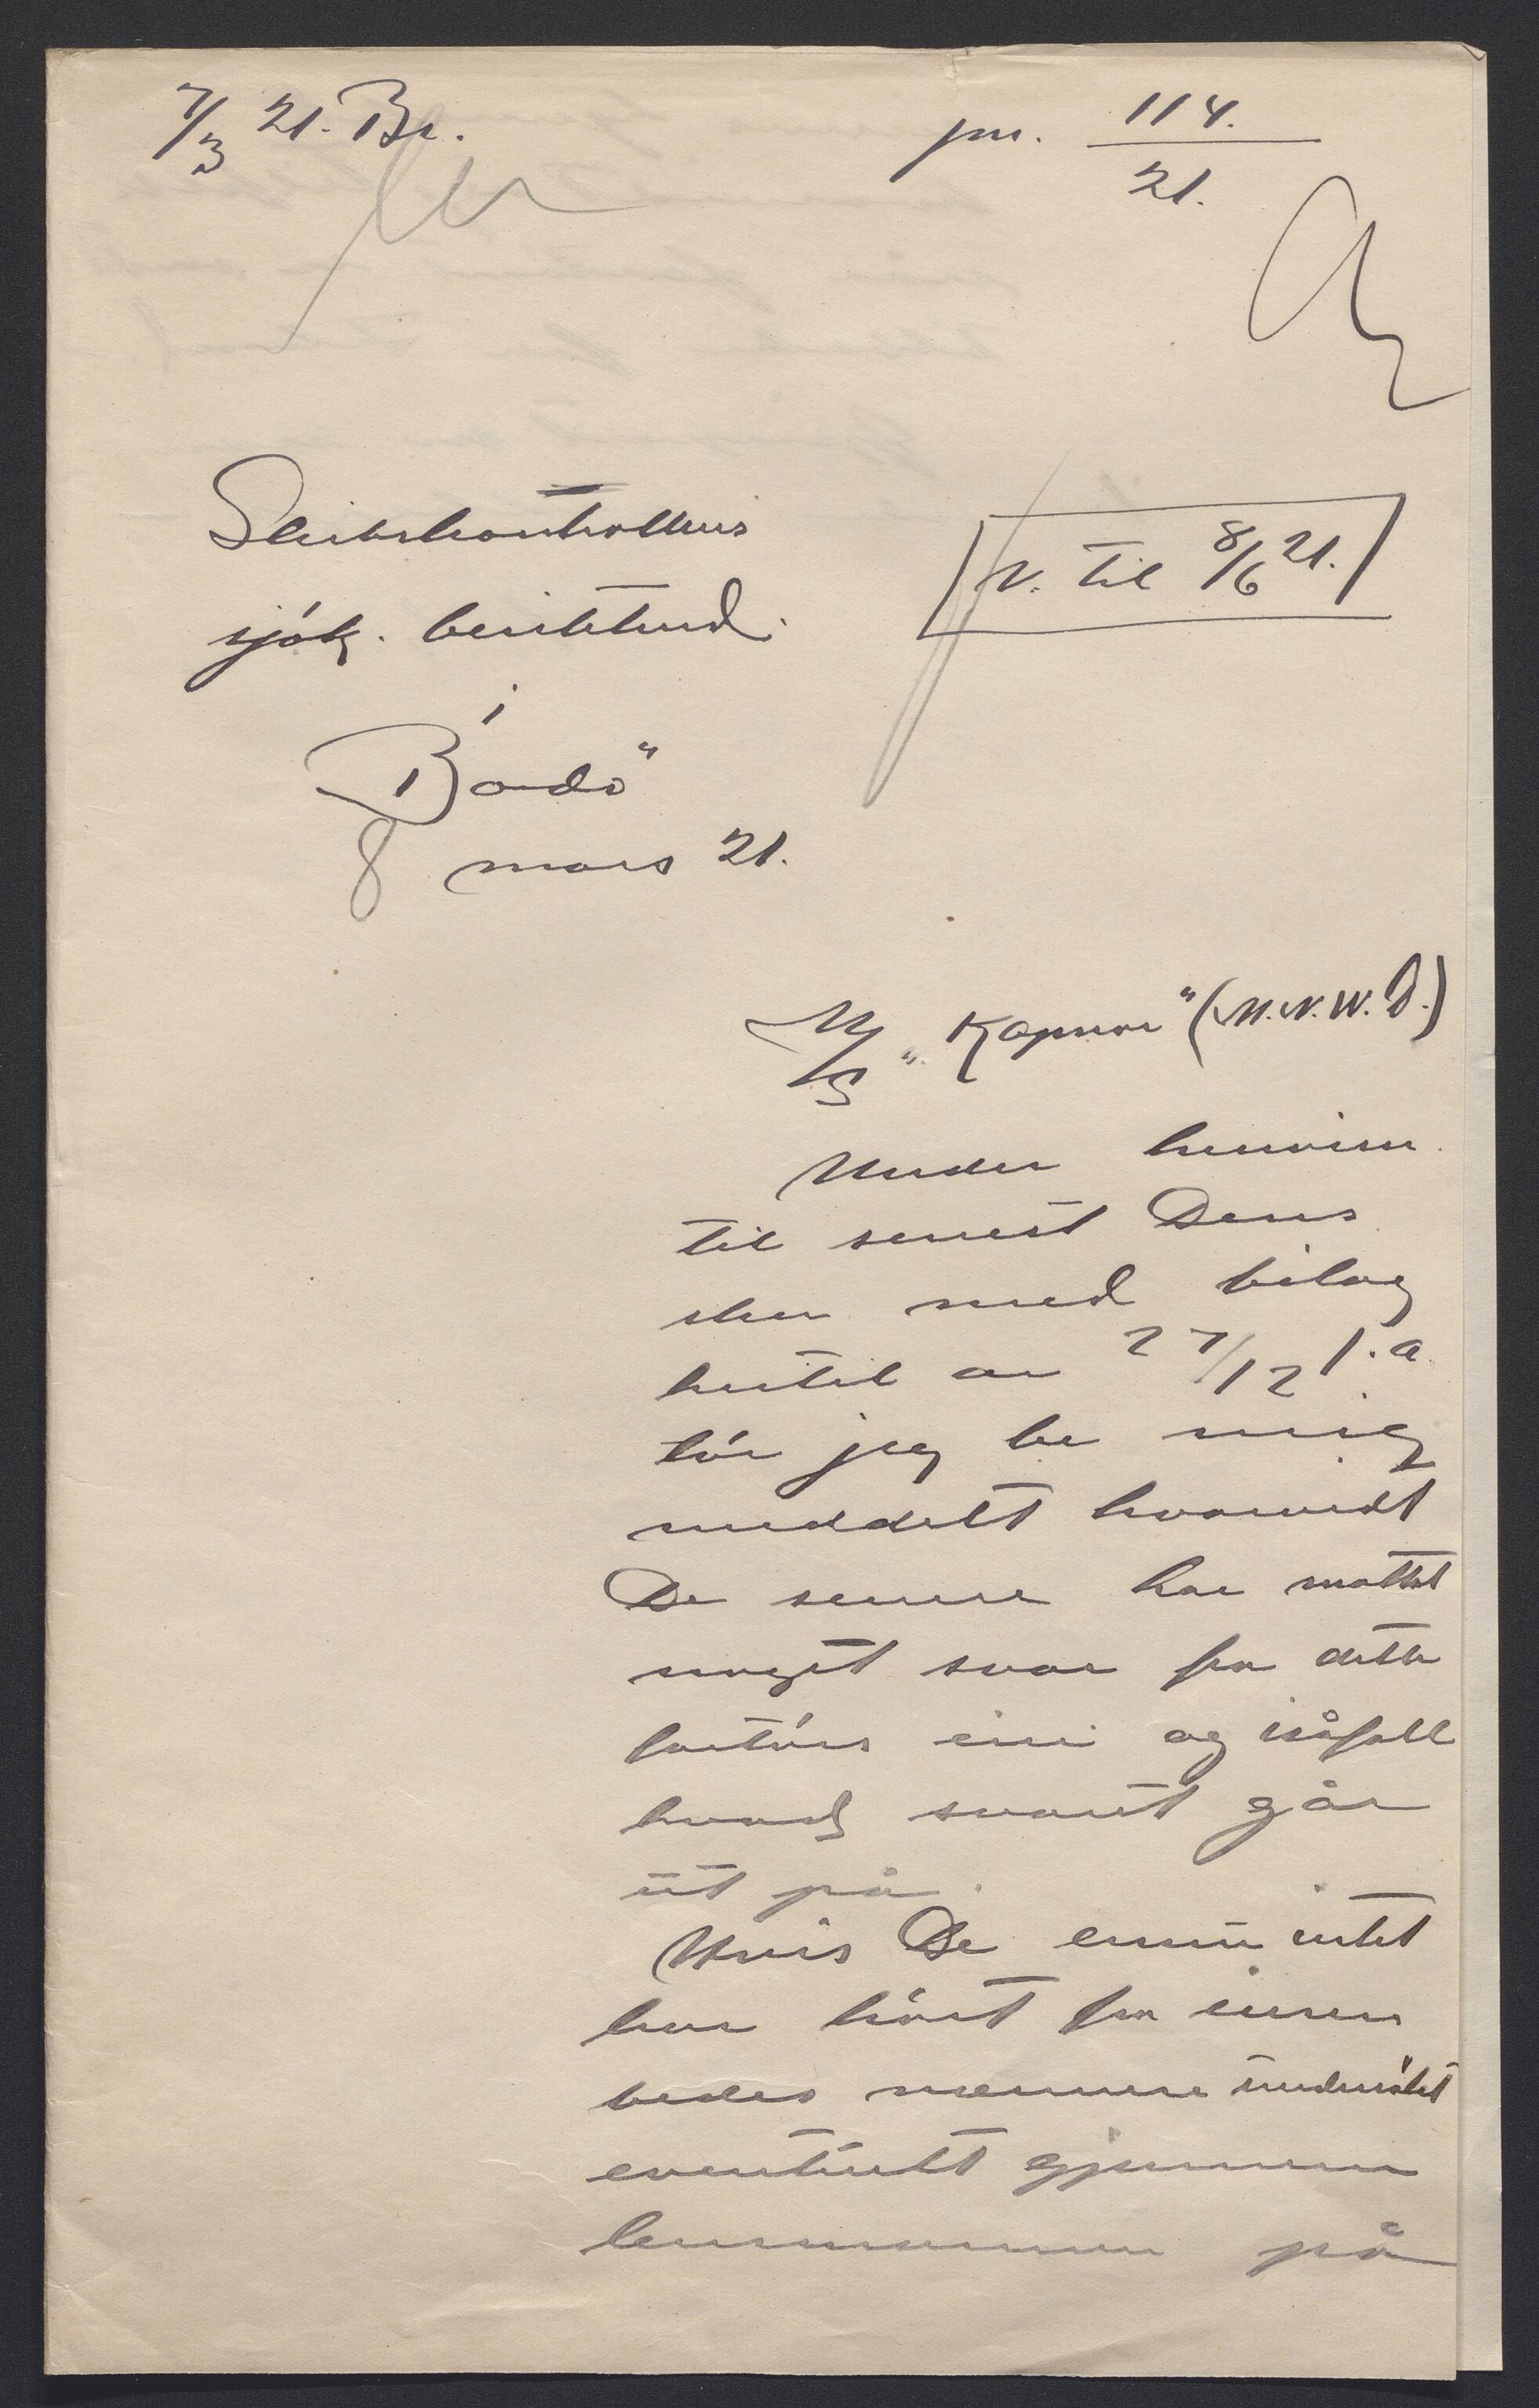 7/3 21. Br.
jnr. 114.
21.
Skibskontrollens
sjøk. besiktend.
v. til 8/6 21.
i
Bodö"
8 mars 21.
M/S "Kapnor" (M.N.W.D.)
Under henvisn.
til senest Deres
skr. med bilag
hertil av 27/12 f.a.
tör jeg be mig
meddelt hvorvidt
De senere har mottat
noget svar fra dette
fartöis eier og isåfall
hvad svaret går
ut på.
Hvis De ennu intet
har hört fra eieren
bedes narmere undersökt
eventuelt gjennem
lensmannen på